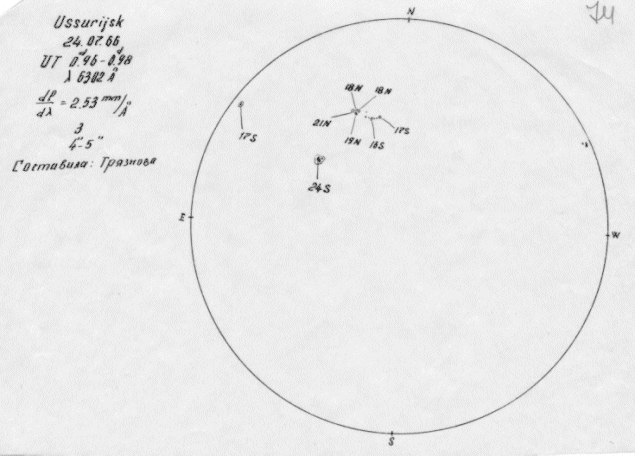 Ussurijsk
24.07.66
UT 0.ᵈ96-0.ᵈ98
λ 6302 Å
dl/dλ = 2.53 mm/Å
3
4"-5"
Составила: Грязнова
74
N
18N 18N
21N 19N 16S 17S
17S
24S
E
W
S